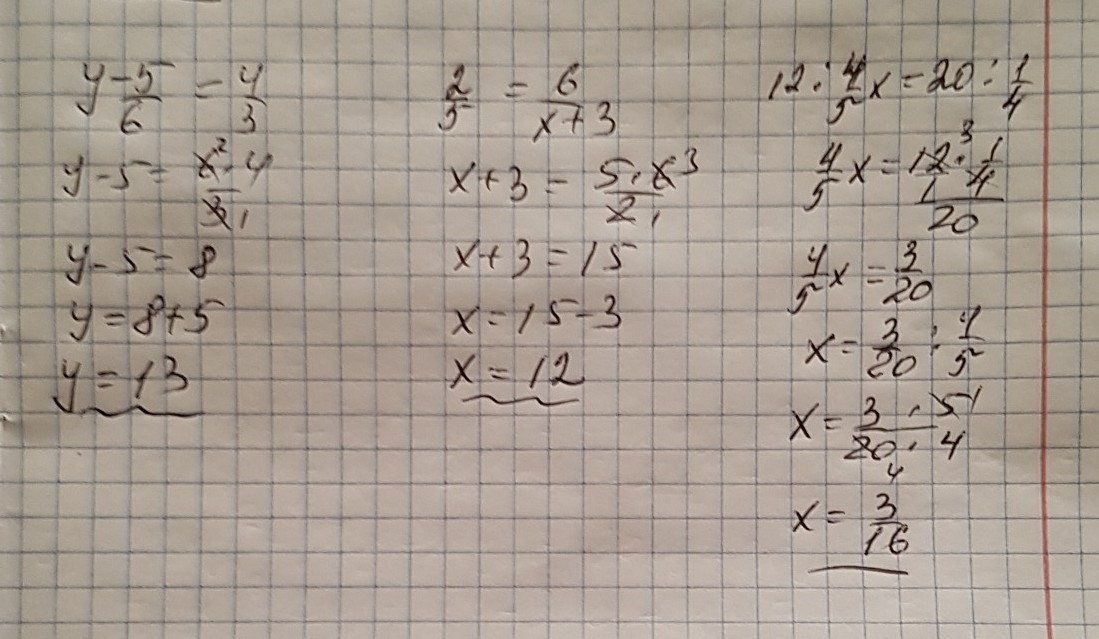 y-5/6 = 4/3
y-5 = 6²·4/3₁
y-5 = 8
y = 8+5
y = 13
2/5 = 6/(x+3)
x+3 = 5·6³/2₁
x+3 = 15
x = 15-3
x = 12
12 : 4/5 x = 20 : 1/4
4/5 x = (12³/1 · 1/4)/20
4/5 x = 3/20
x = 3/20 : 4/5
x = 3·5¹/20₄·4
x = 3/16